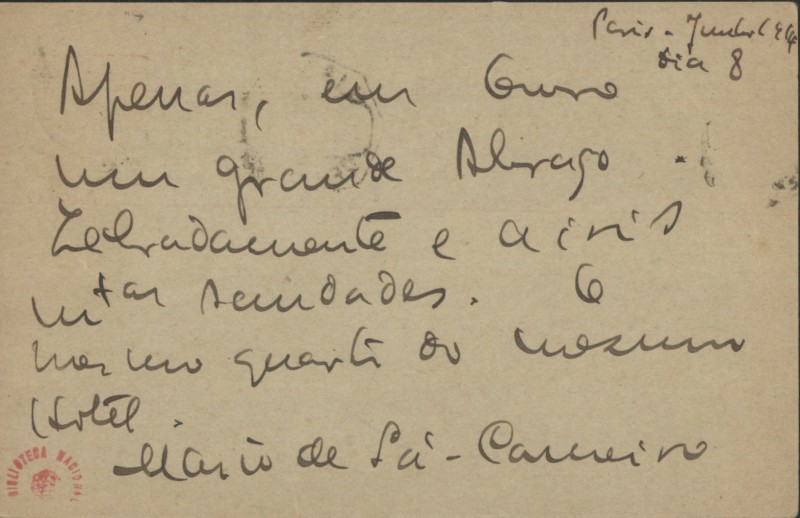 Paris - Junho 1914
dia 8
Apenas, em Ouro
um grande Abraço.
Zebradamente e a iris
mtas saudades. O
mesmo quarto do mesmo
Hotel.
Mario de Sá-Carneiro
BIBLIOTECA NACIONAL